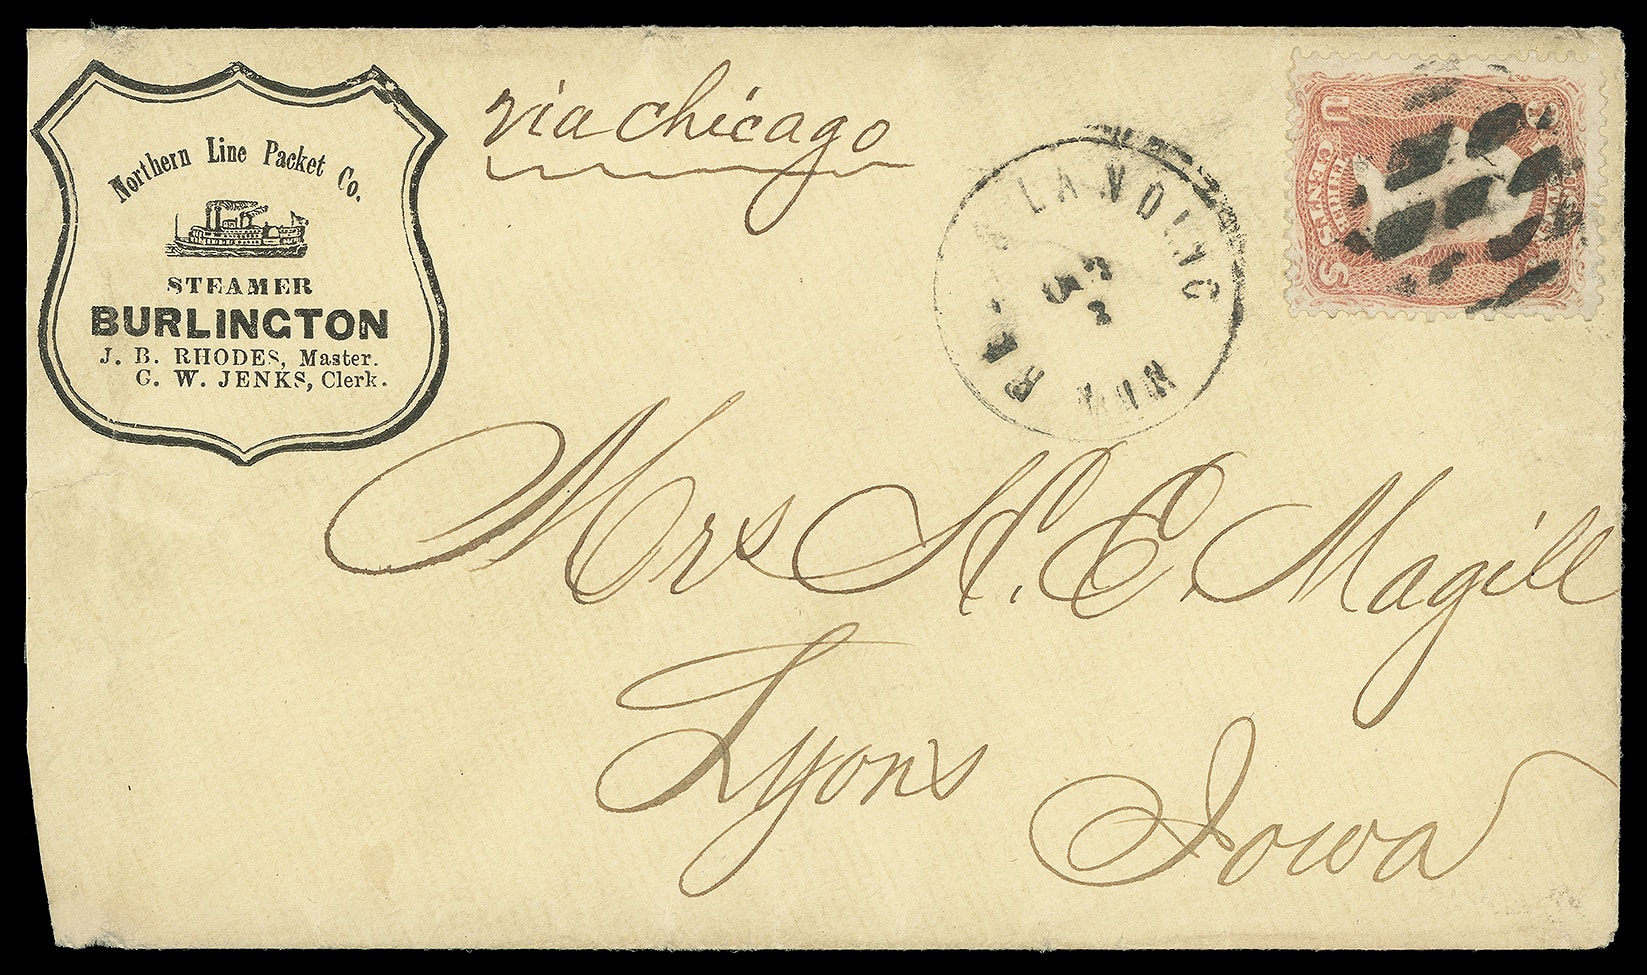 Northern Line Packet Co.
STEAMER
BURLINGTON
J. B. RHODES, Master.
G. W. JENKS, Clerk.
via chicago
LANDING
MIN
U S
CENTS
Mrs H. E. Magill
Lyons
Iowa